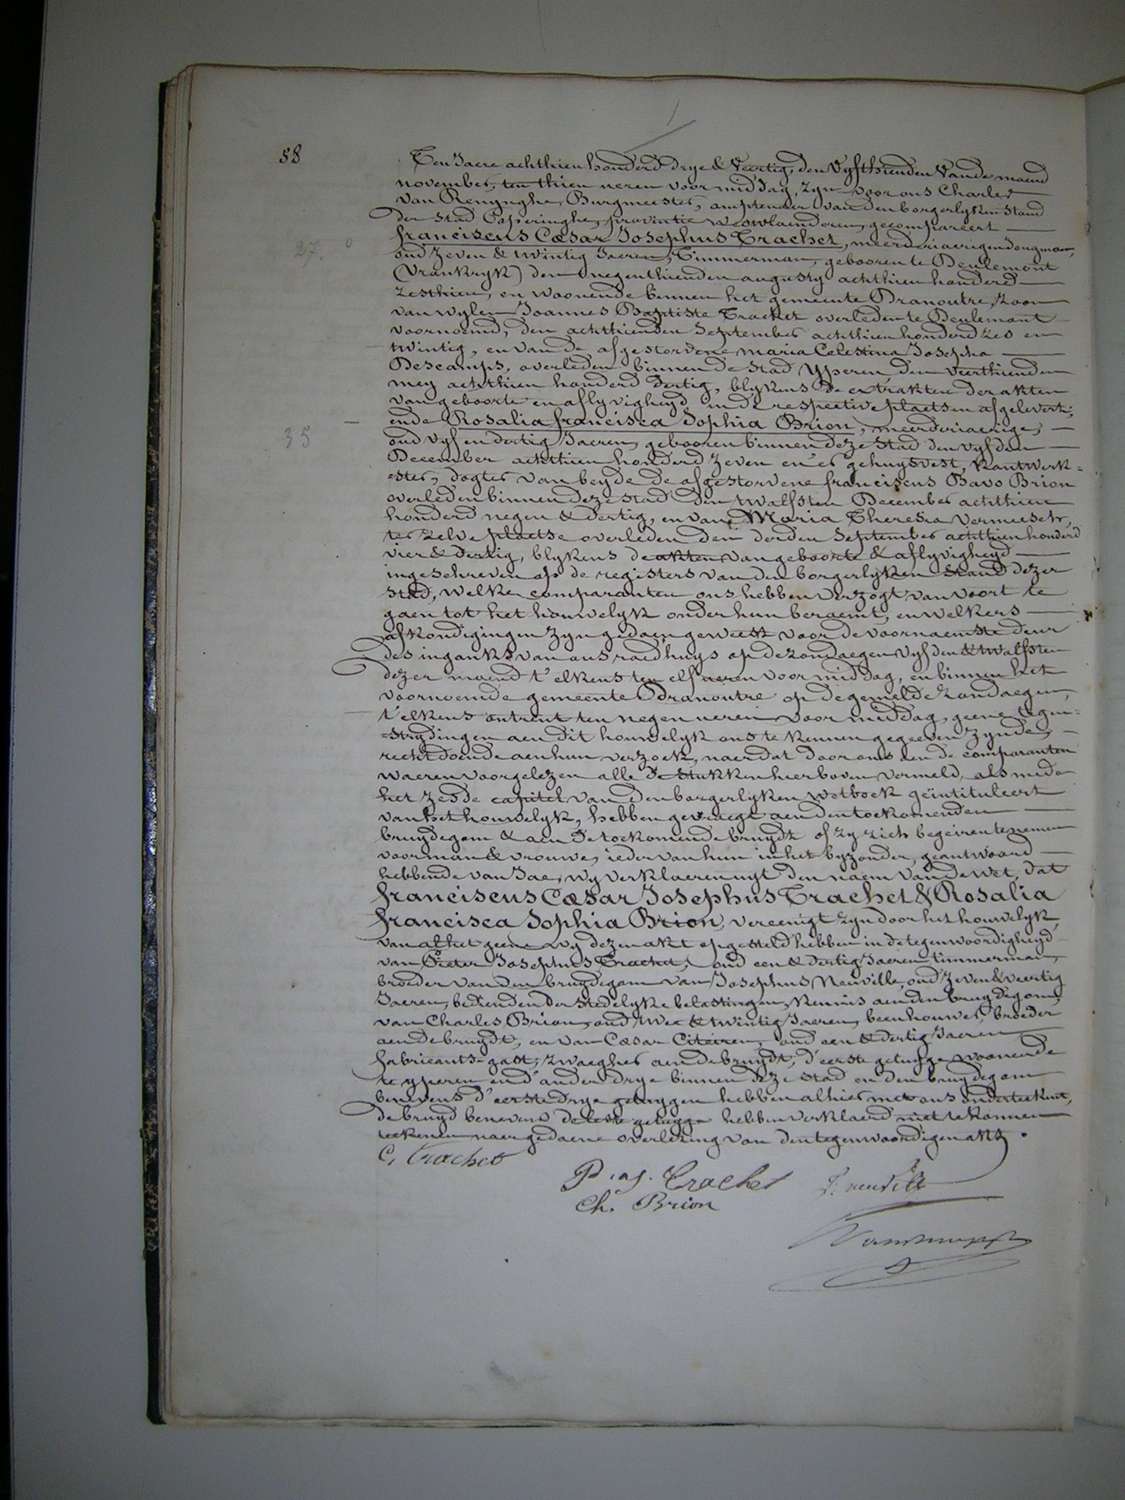 88
Ten Jaere achthien honderd drye & veertig, den vyfthienden van de maend
november, ten thien ueren voor middag, zyn voor ons Charles
van Renynghe, Burgmeester, amptenaer van den borgerlyken stand
der stad Poperinghe, provintie Westvlaenderen, gecompareert
27
franciscus Cæsar Josephus Trachet, meerderjaerigen jongman,
oud zeven & twintig Jaeren, Timmerman, gebooren te Deulemont
(Vrankryk) den negenthienden augusty achthien honderd
zesthien, en woonende binnen het gemeente Dranoutre, zoon
van wylen Joannes Baptiste Trachet overleden te Deulemont
voornoemd, den achthienden September achthien honderd zes en
twintig, en van de afgestorvene Maria Celestina Josepha
Descamps, overleden binnen de stad Yperen den veerthienden
mey achthien honderd dertig, blykens de extrakten der akten
van geboorte en aflyvigheyd in de respective plaetsen afgelevert;
35
ende Rosalia francisca Sophia Brion, meerderjaerige,
oud vyf en dertig Jaeren, gebooren binnen deze stad den vyfden
December achthien honderd zeven en er gehuysvest, kantwerk-
ester, dogter van beyde de afgestorvene franciscus Bavo Brion
overleden binnen deze stad den twalfsten December achthien
honderd negen & dertig, en van Maria Theresia Vermeesch,
ter zelve plaetse overleden den derden September achthien honderd
vier & dertig, blykens de akten van geboorte & aflyvigheyd
ingeschreven op de registers van den borgerlyken stand dezer
stad, welke comparanten ons hebben verzogt van voort te
gaen tot het houwelyk onder hun beraemt, en welkers
afkondigingen zyn gedaen geweest voor de voornaemste deur
des ingangs van ons raedhuys op de zondaegen vyfden & twalfsten
dezer maend t'elkens ten elf ueren voor middag, en binnen het
voornoemde gemeente Dranoutre op de gemelde zondaegen,
t'elkens ontrent ten negen ueren voor middag, geene tegen-
strydingen aen dit houwelyk ons te kennen gegeeven zynde,
recht doende aen hun verzoek, naer dat door ons aen de comparanten
waeren voorgelezen alle de stukken hier boven vermeld, als mede
het zesde capitel van den borgerlyken wetboek geïntituleert
van het houwelyk, hebben gevraegt aen den toekomenden
bruydegom & aen de toekomende bruydt of zy zich begeiren te nemen
voor man & vrouwe, ieder van hun in het byzonder, geantwoord
hebbende van Jae, wy verklaeren uyt den naem van de wet, dat
franciscus Cæsar Josephus Trachet & Rosalia
francisca Sophia Brion, vereenigt zyn door het houwelyk,
van al het geene wy dezen akt opgesteld hebben in de tegenwoordigheyd
van Pieter Josephus Trachet, oud een & dertig Jaeren timmerman,
broeder van den bruydegom van Josephus Neuville, oud zeven & veertig
Jaeren, bedienden der stedelyke belastingen, kennis aen den bruydegom,
van Charles Brion, oud twee & twintig Jaeren, beenhouwer, broeder
aen de bruydt, en van Cæsar Citeren, oud een & dertig Jaeren
fabricants-gast, zwaegher aen de bruydt, d'eerste getuyge woonende
te yperen en d'andere drye binnen deze stad en den bruydegom
benevens d'eerste drye getuygen hebben alhier met ons onderteekent,
de bruyd benevens de leste getuyge hebben verklaerd niet te konnen
teekenen naer gedaene overlezing van den tegenwoordigen akt.
C. Trachet
P. j. Trachet
J. neuville
Ch. Brion